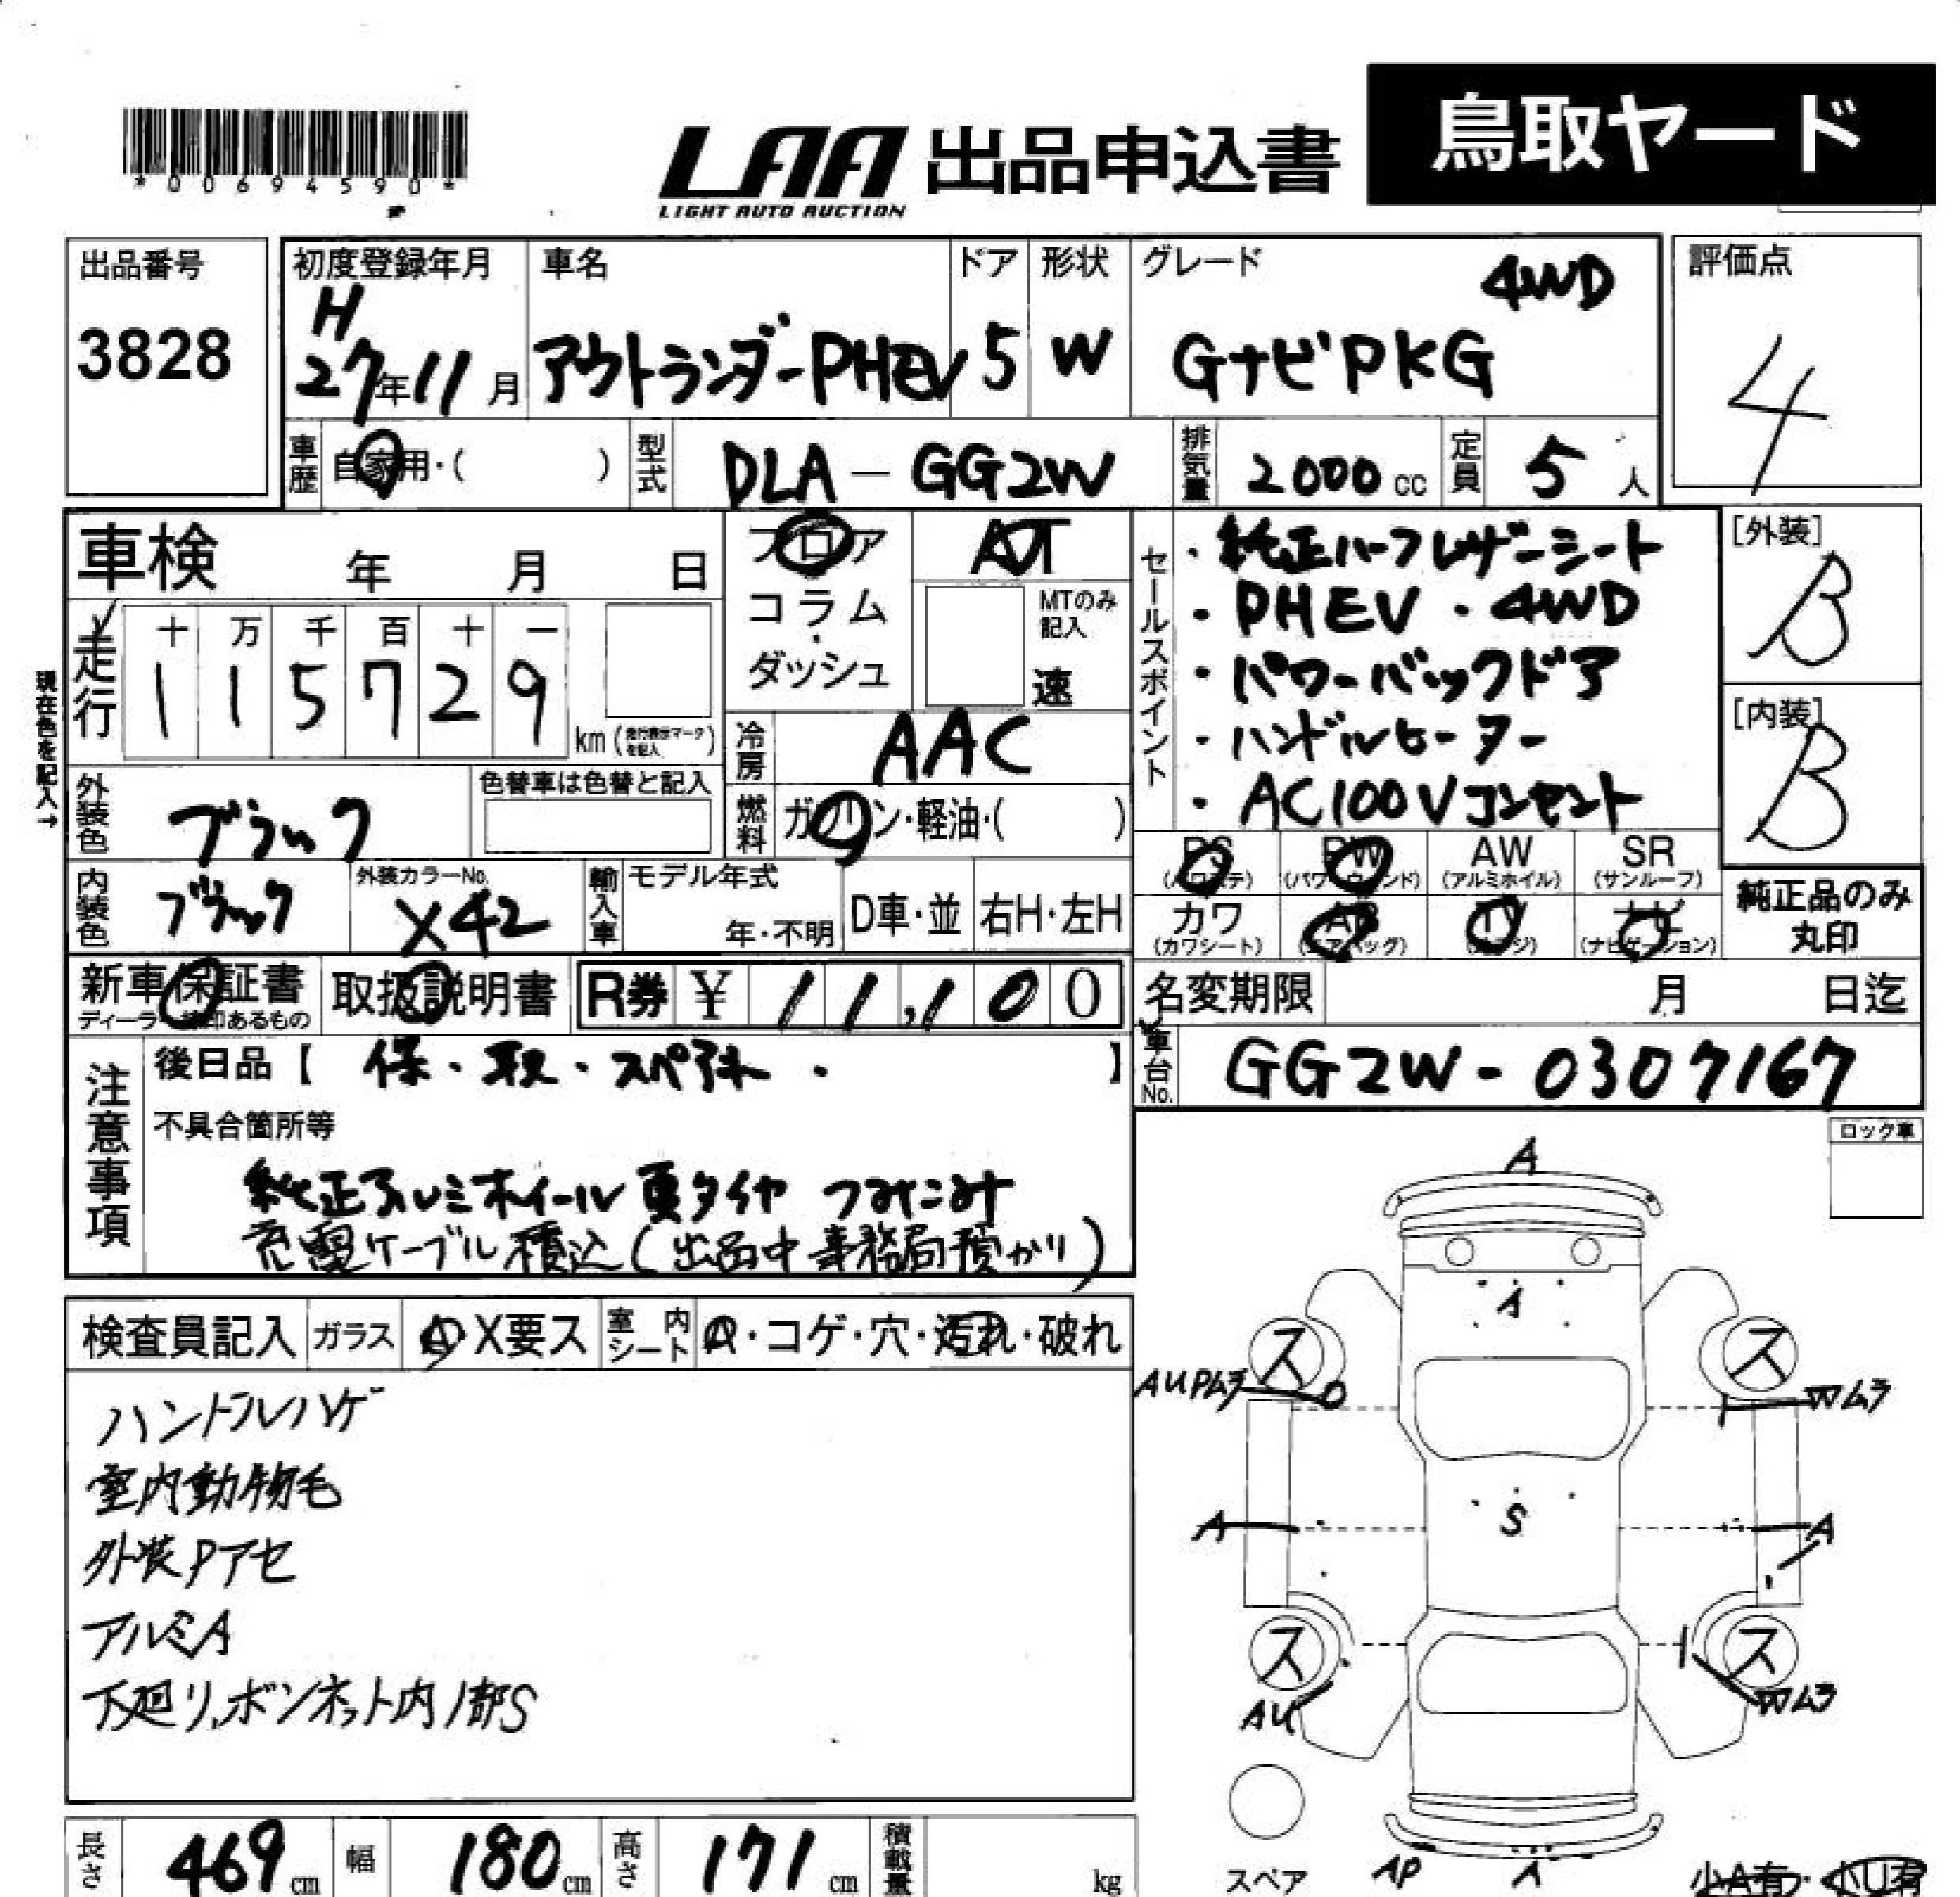 *00694590*
LAA 出品申込書
LIGHT AUTO AUCTION
鳥取ヤード
出品番号
3828
初度登録年月
H
27年11月
車名
アウトランダーPHEV
ドア
5
形状
W
グレード
4WD
GナビPKG
評価点
4
車歴
自家用・( )
型式
DLA-GG2W
排気量
2000 cc
定員
5 人
車検 年 月 日
フロア
コラム
・
ダッシュ
AT
MTのみ
記入
速
セールスポイント
・純正ハーフレザーシート
・PHEV・4WD
・パワーバックドア
・ハンドルヒーター
・AC100Vコンセント
[外装]
B
[内装]
B
走行
十 万 千 百 十 一
1 1 5 7 2 9
km(走行表示マークを記入)
現在色を記入→
冷房
AAC
燃料
ガソリン・軽油・( )
外装色
ブラック
色替車は色替と記入
内装色
ブラック
外装カラーNo.
X42
輸入車
モデル年式
年・不明
D車・並
右H・左H
PS
(パワステ)
PW
(パワーウィンド)
AW
(アルミホイル)
SR
(サンルーフ)
カワ
(カワシート)
AB
(エアバッグ)
TV
(地デジ)
ナビ
(ナビゲーション)
純正品のみ
丸印
新車保証書
取扱説明書
R券 ¥ 11,100
名変期限 月 日迄
車台No.
GG2W-0307167
注意事項
後日品【 保・取・スペアキー・ 】
不具合箇所等
純正アルミホイール夏タイヤ つみこみ
充電ケーブル積込(出品中事務局預かり)
ロック車
検査員記入
ガラス
A・X要ス
室内
シート
A・コゲ・穴・汚れ・破れ
ハンドルハゲ
室内動物毛
外装Pアセ
アルミA
下廻り、ボンネット内1部S
A
A
ス
ス
AUPムラ
Wムラ
S
A
A
ス
ス
AU
Wムラ
AP
A
スペア
少A有・小U有
長さ
469cm
幅
180cm
高さ
171cm
積載量
kg